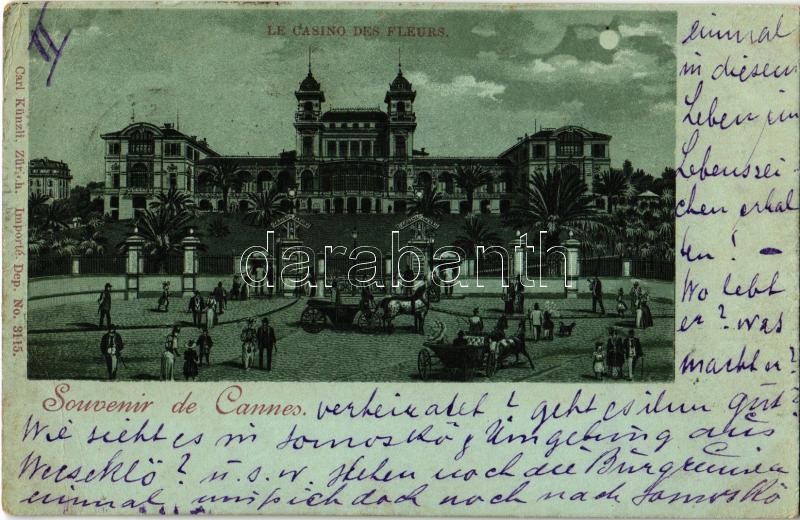 II
LE CASINO DES FLEURS.
Carl Künzli, Zürich. Importé. Dep. No. 3115.
darabanth
einmal
in diesem
Leben ein
Lebenszei-
chen erhal
ten! -
Wo lebt
er? was
macht er?
Souvenir de Cannes.
verheiratet? geht es ihm gut
Wie sieht es in Somoskö & Umgebung aus
Weeseklö? u.s.w. stehen noch die Burgruinen
einmal, muß ich doch noch nach Somoskö